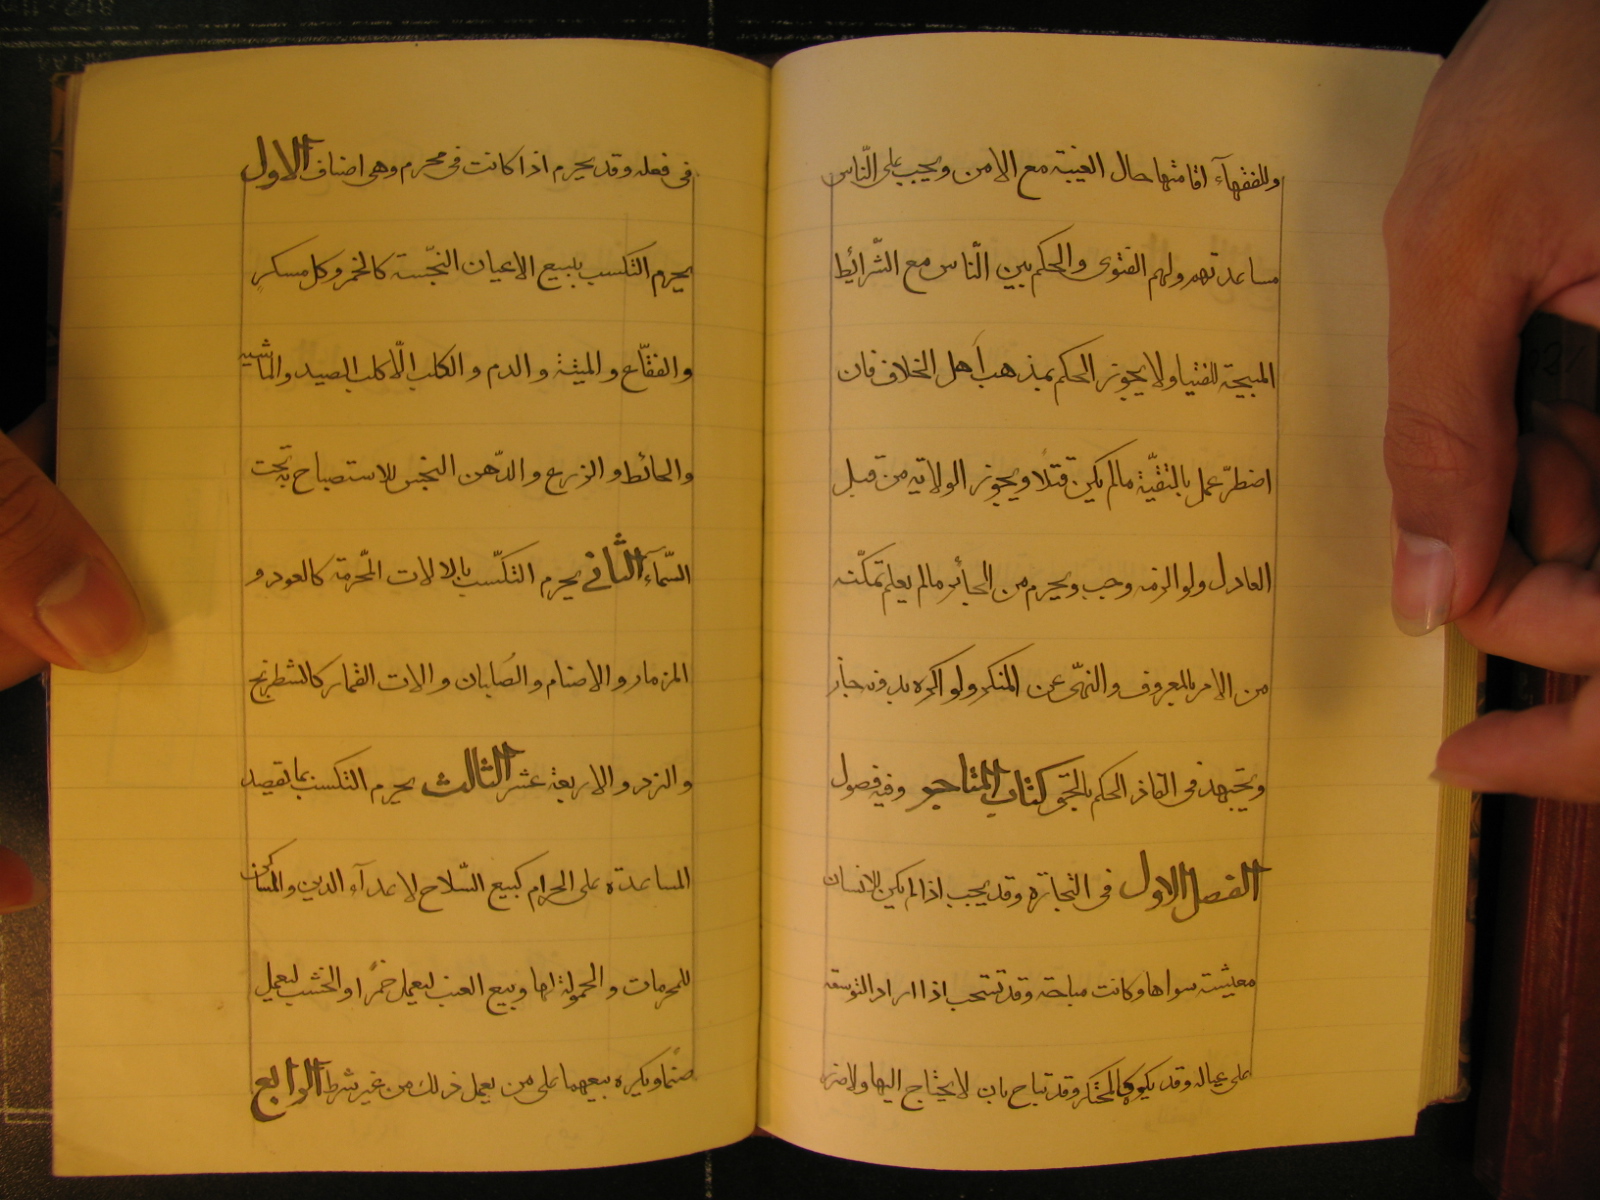 وللفقهآء اقامتها حال الغيبة مع الامن ويجب على النّاس
مساعدتهم ولهم الفتوى والحكم بين النّاس مع الشّرائط
المبيحة للفتيا ولا يجوز الحكم بمذهب أهل الخلاف فان
اضطرّ عمل بالتقيّة مالم يكن قتلًا ويجوز الولاية من قبل
العادل ولو الزمه وجب ويحرم من الجائر مالم يعلم تمكّنه
من الامر بالمعروف والنهّى عن المنكر ولو اكره بدونه جاز
ويجتهد فى انقاذ الحكم بالحق كتاب المتاجر وفيه فصول
الفصل الاول فى التجارة وقد يجب اذا لم يكن للانسان
معيشة سواها وكانت مباحة وقد تستحب اذا اراد التوسعة
على عياله وقد يكره كالمحتكر وقد تباح بان لا يحتاج اليها ولا ضرر
فى فعله وقد يحرم اذا كانت فى محرم وهى اصناف الاول
يحرم التكسب ببيع الاعيان النجّسة كالخمر وكل مسكرٍ
والفقّاع والميتة والدم والكلب الّا كلب الصيد والماشية
والحائط والزرع والدّهن النجس للاستصباح به تحت
السّمآء الثانى يحرم التكسّب بالالات المحّرمة كالعود و
المزمار والاصنام والصُلبان والات القمار كالشطرنج
والنرد والاربعة عشر الثالث يحرم التكسب بما يقصد
المساعدة على الحرام كبيع السّلاح لاعدآء الدين والمساكن
للمحرمات والحمولة لها وبيع العنب ليعمل خمرًا والخشب ليعمل
صنمًا ويكره بيعهما على من يعمل ذلك من غير شرط الرابع